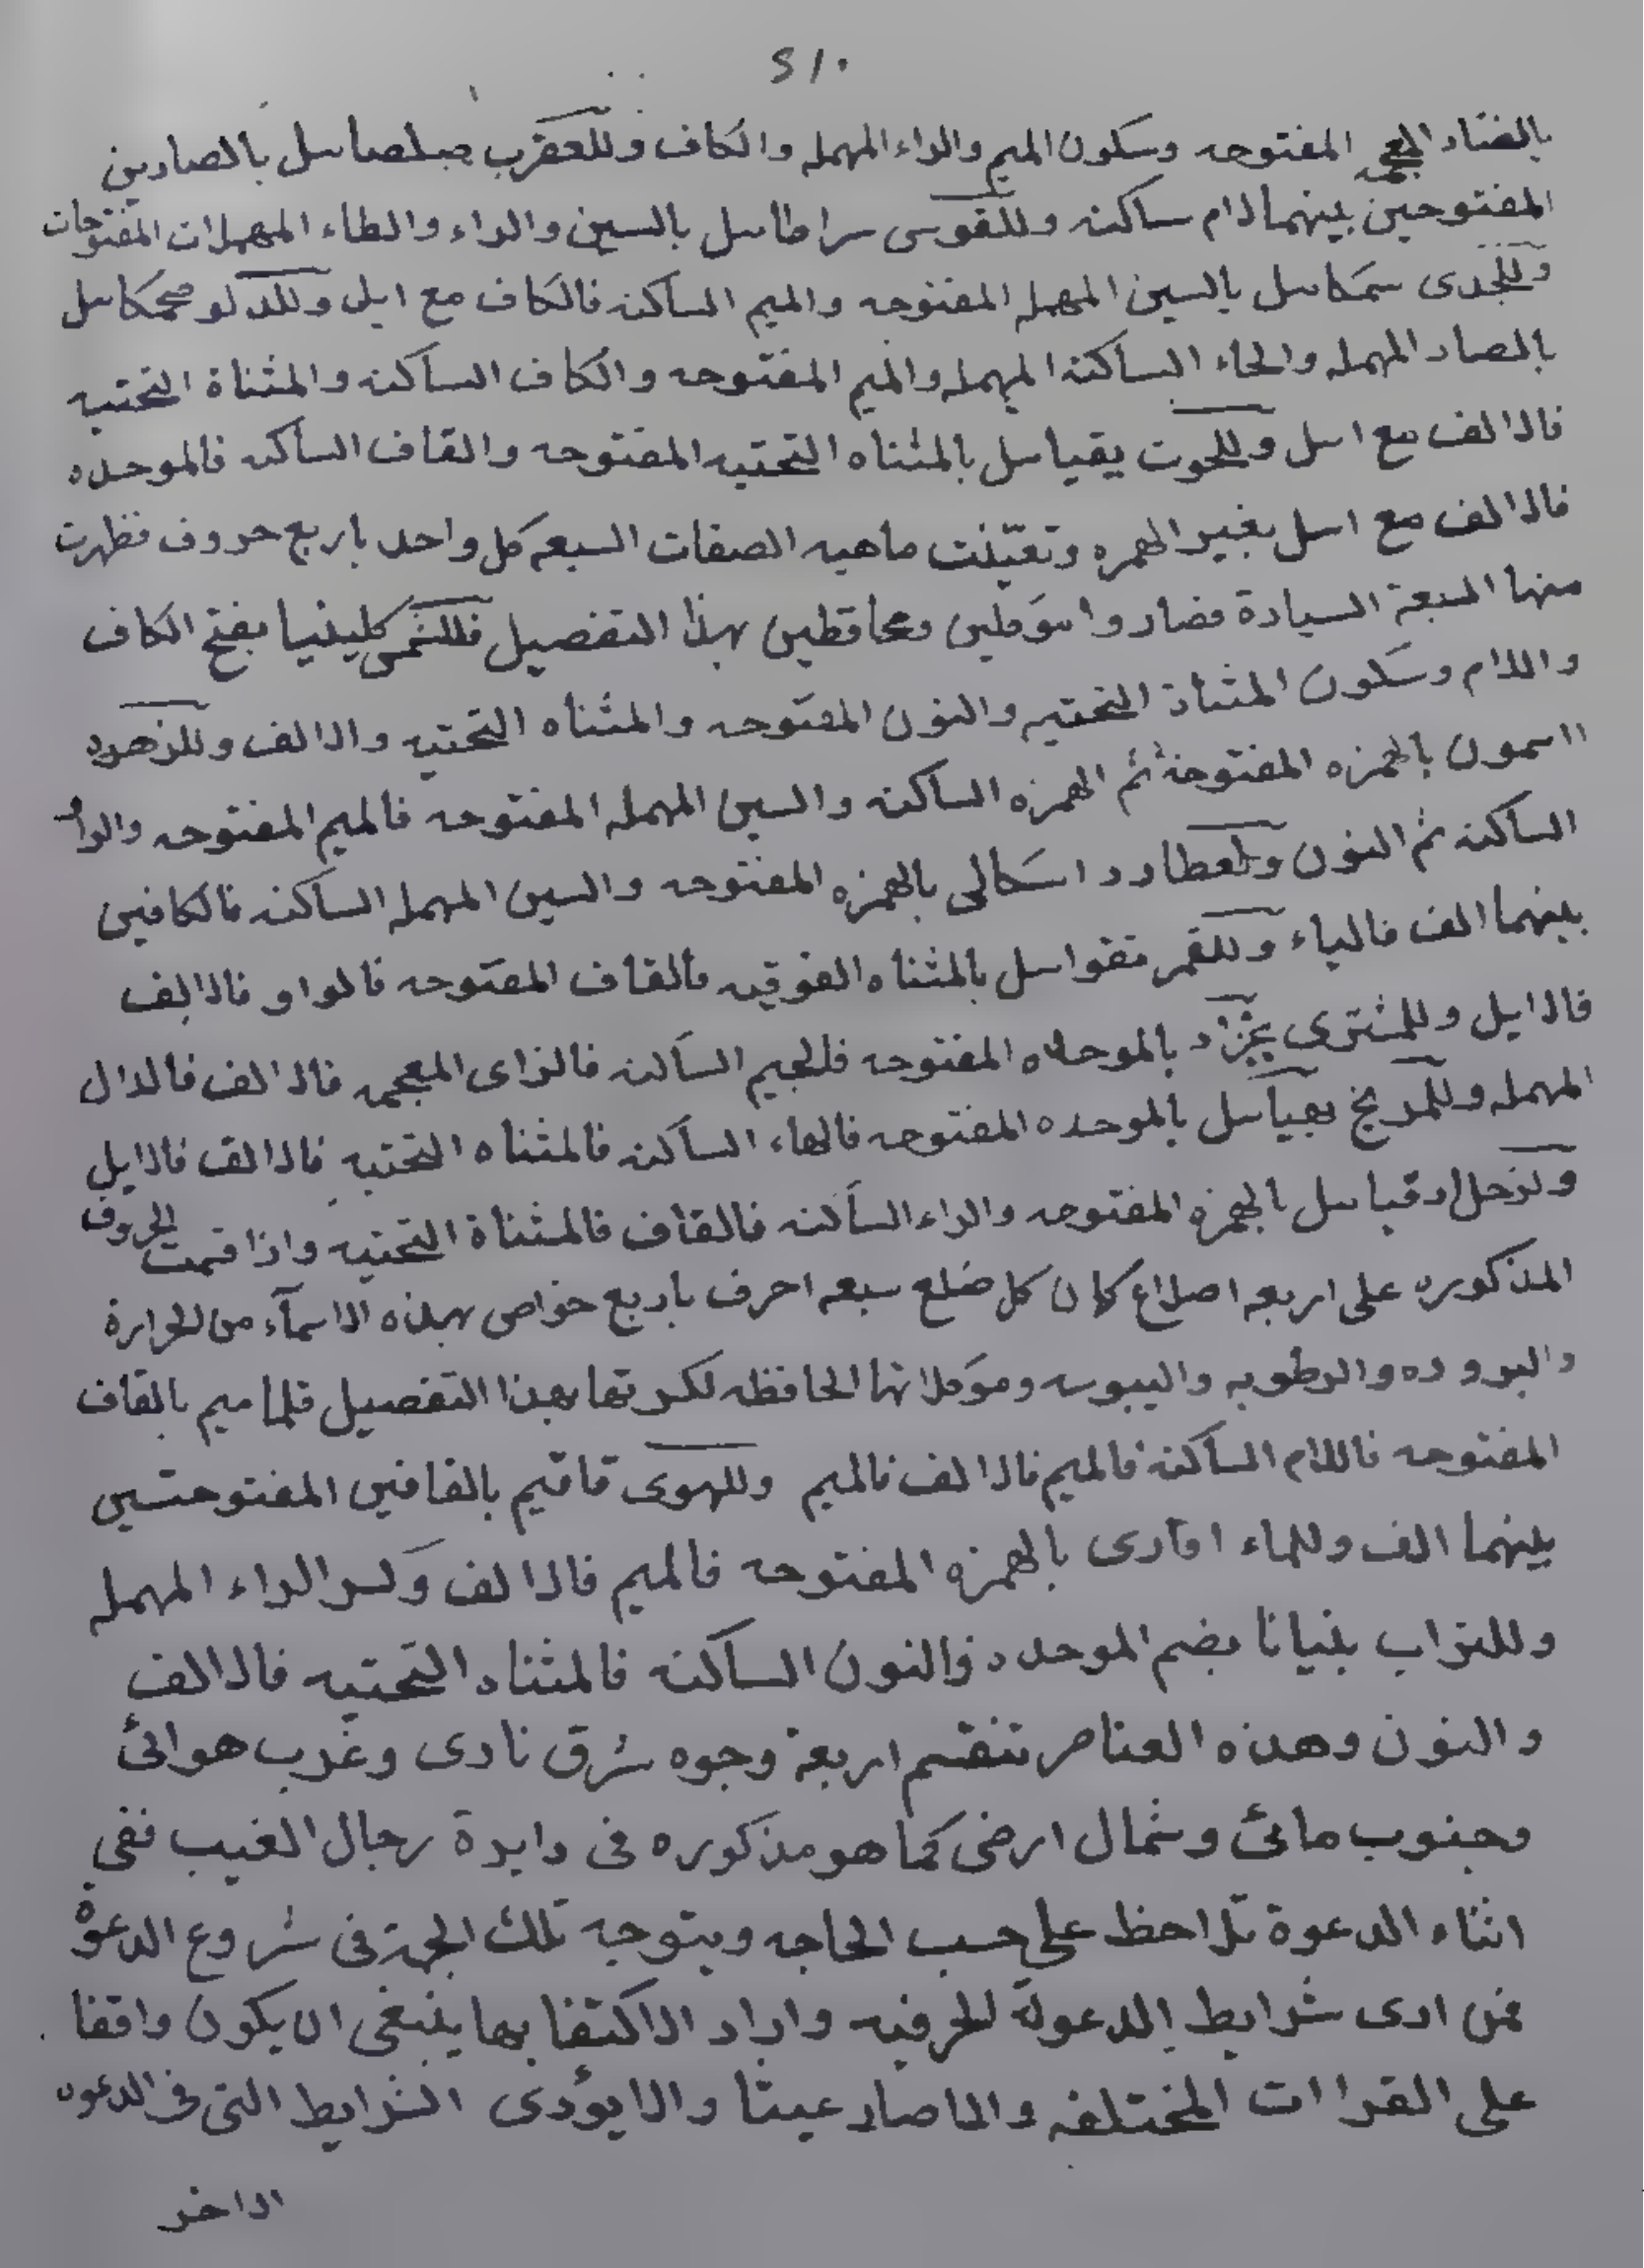 ٢١٠
بالضاد المعجمه المفتوحه وسكون الميم والراء المهمله والكاف وللعقرب صلصاىىل بالصادين
المفتوحين بينهما لام ساكنه وللقوس سراطاىىل بالسين والراء والطاء المهملات المفتوحات
وللجدى سمكاىىل بالسين المهمله المفتوحه والميم الساكنه فالكاف مع ايل وللدلو صحمكاىىل
بالصاد المهمله والحاء الساكنة المهمله والميم المفتوحه والكاف الساكنه والمثناة التحتيه
فالالف مع اىىل وللحوت يقياىىل بالمثناه التحتيه المفتوحه والقاف الساكنه فالموحده
فالالف مع اىىل بغير الهمزه وتعيّنت ماهيه الصفات السبعه كل واحد باربع حروف فظهرت
منها السبعة السيارة فصاروا موكلين ومحافظين بهذا التفصيل فللشمس كلينيا بفتح الكاف
واللام وسكون المثناة التحتيه والنون المفتوحه والمثناه التحتيه والالف وللزهره
ااسمون بالهمزه المفتوحة ثم الهمزه الساكنه والسين المهمله المفتوحه فالميم المفتوحه والواو
الساكنه ثم النون ولعطارد اسكالى بالهمزه المفتوحه والسين المهمله الساكنه فالكافين
بينهما الف فالياء وللقمر تقواىىل بالمثناه الفوقيه فالقاف المفتوحه فالواو فالالف
فالايل وللمشترى بجزاد بالموحده المفتوحه فالجيم الساكنه فالزاى المعجمه فالالف فالدال
المهمله وللمريخ بهياىىل بالموحده المفتوحه فالهاء الساكنه فالمثناه التحتيه فالالف فالايل
ولزحل ارقياىىل بالهمزه المفتوحه والراء الساكنه فالقاف فالمثناة التحتيه واذا قسمت الحروف
المذكوره على اربعه اضلاع كان كل ضلع سبعه احرف باربع خواص بهذه الاسمآء من الحرارة
والبروده والرطوبه واليبوسه وموكلاتها الحافظه لكرتها بهذا التفصيل قلماميم بالقاف
المفتوحه فاللام الساكنة فالميم فالالف فالميم وللهوى قاقيم بالقافين المفتوحتين
بينهما الف وللماء امارى بالهمزه المفتوحه فالميم فالالف وكسر الراء المهمله
وللتراب بنيانا بضم الموحده والنون الساكنه فالمثناه التحتيه فالالف
والنون وهذه العناصر تنقسم اربعة وجوه شرق نارى وغرب هوائى
وجنوب مائى وشمال ارضى كما هو مذكوره فى دايرة رجال الغيب ففى
اثناء الدعوة تلاحظ على حسب الحاجه ويتوجه تلك الجهة فى شروع الدعوة
فمن ادى شرايط الدعوة الحرفيه واراد الاكتفا بها ينبغى ان يكون واقفا
على القراات المختلفه والا صار عبثا والا يؤدى الشرايط التى فى الدعوه
الاخر